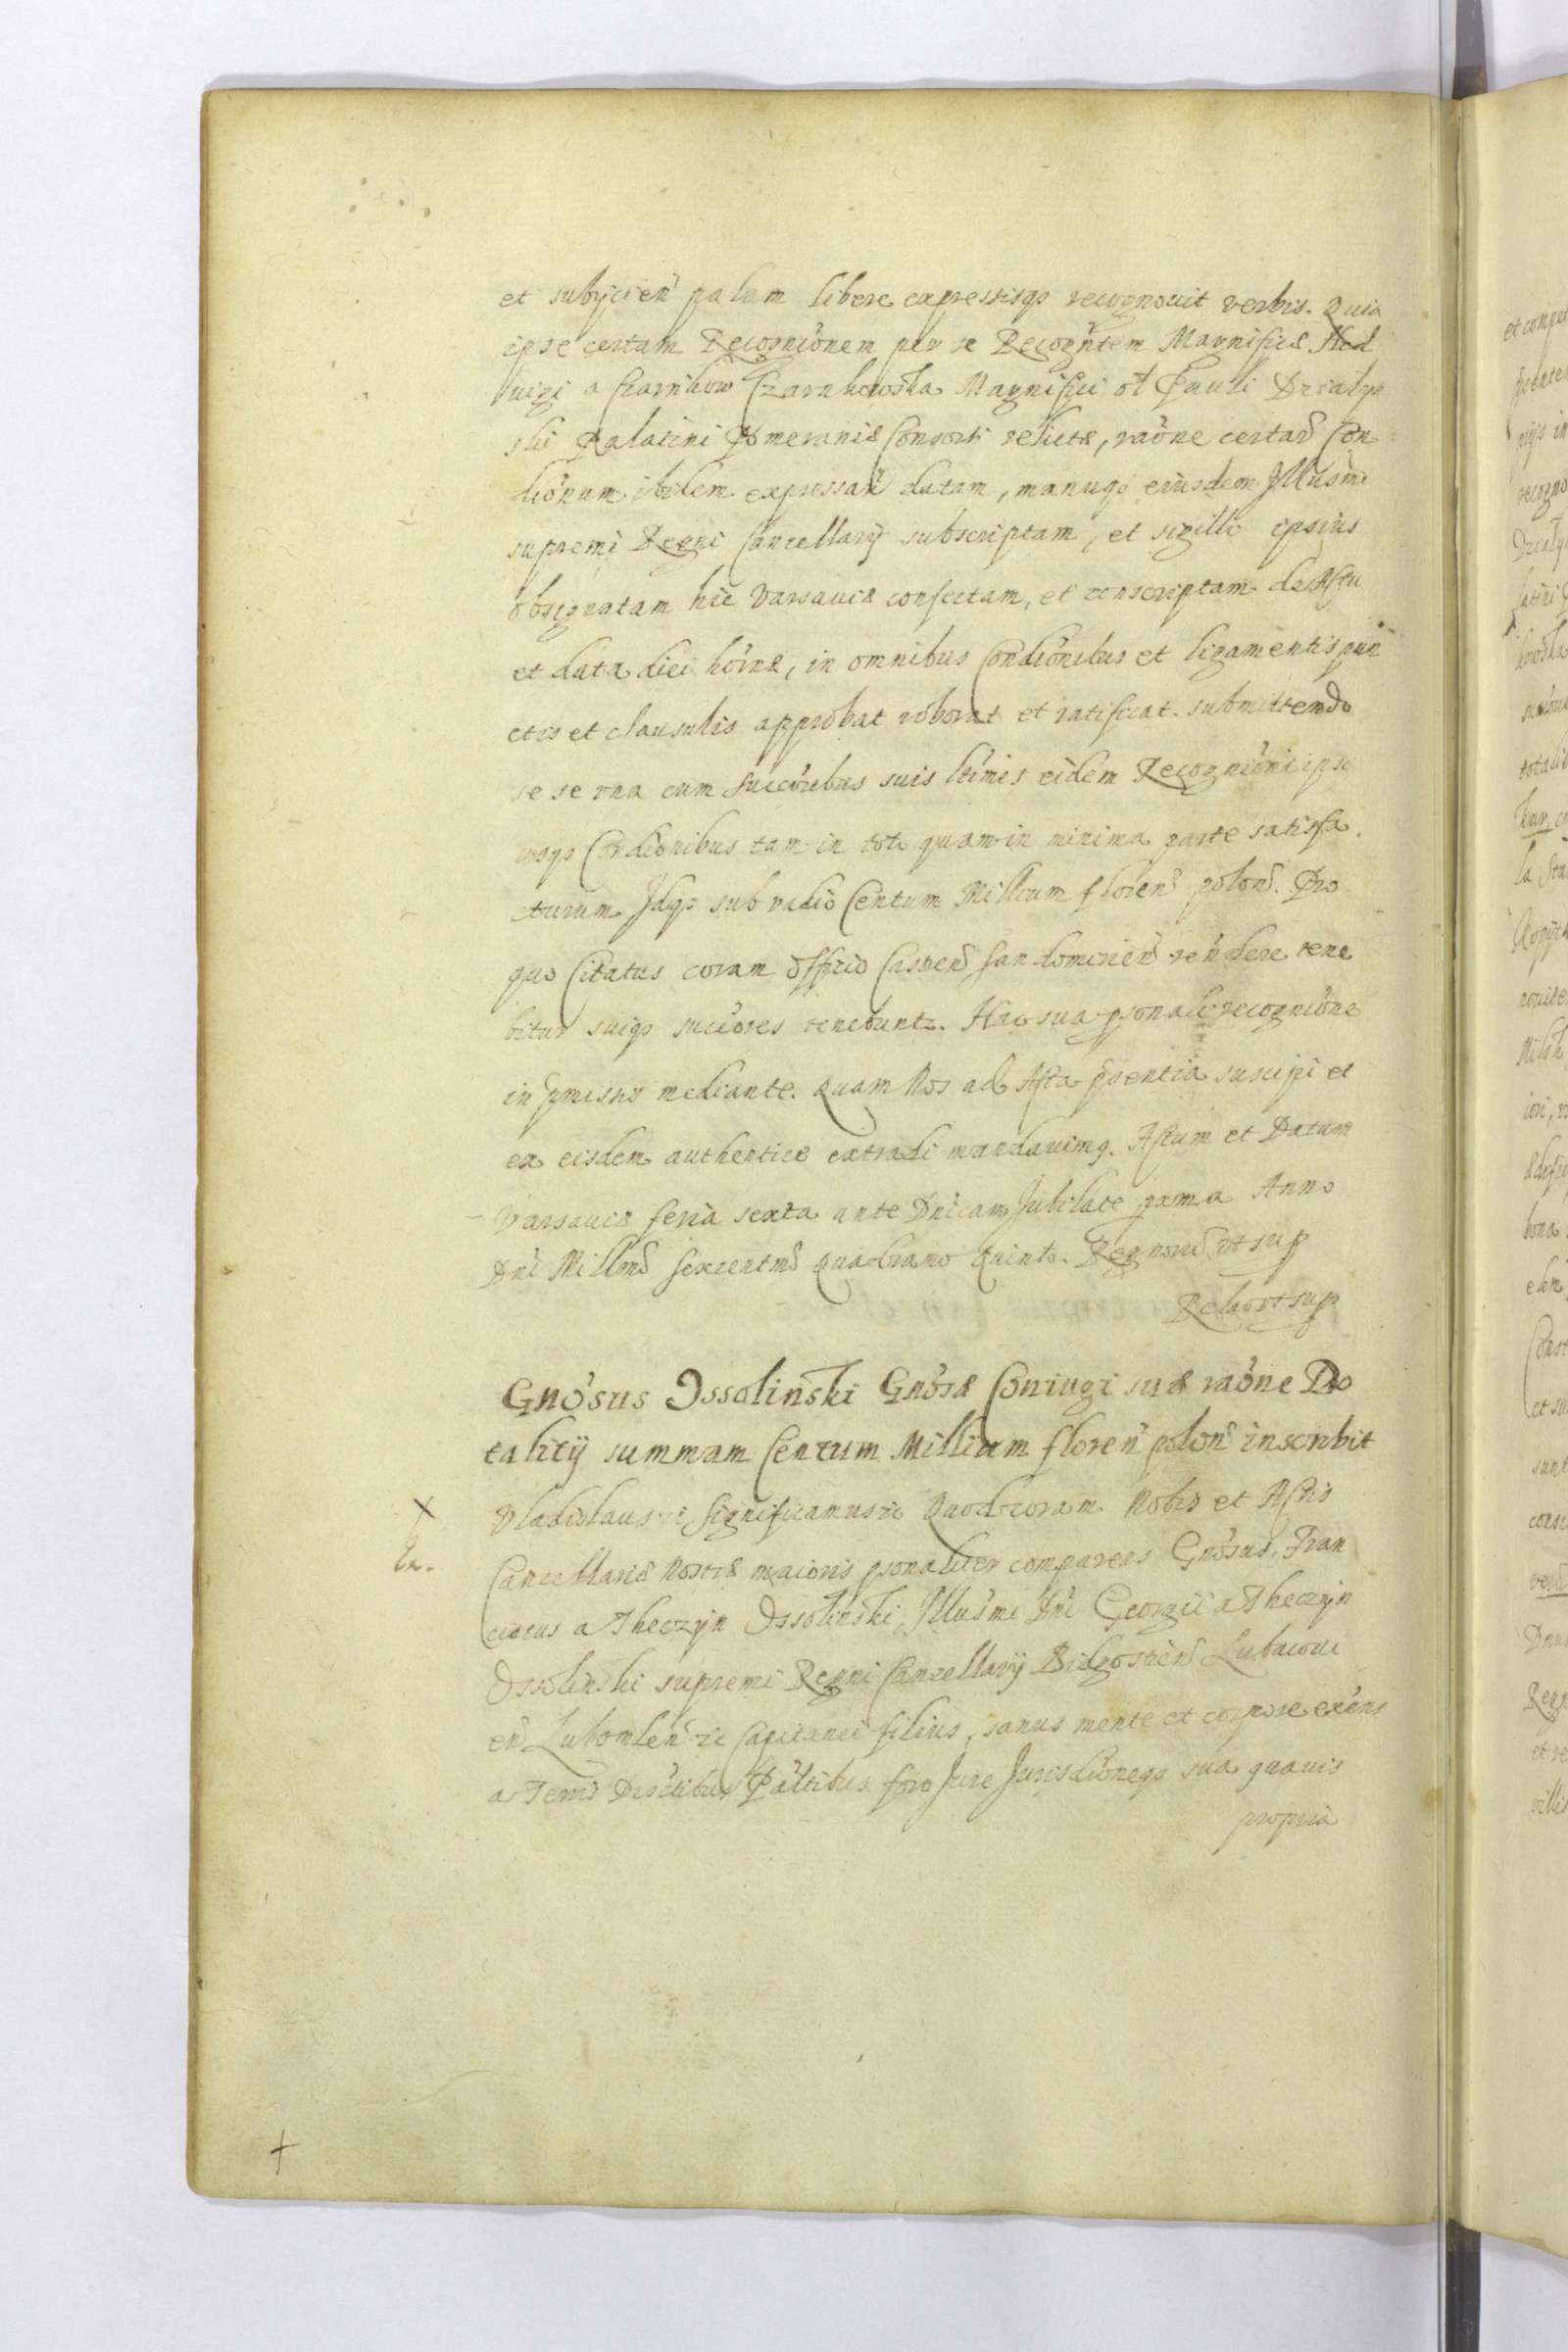 et subijcien palam libere expressisqȝ recognouit verbis. Quia
ipse certam Recognōnem per se Recogn̄tem Magnificæ Hed
uigi a Czarnkow Czarnkowska Magnifici ol Pauli Dzialyn
ski Palatini Pomeraniæ Consorti relictæ, raōne certar Con
diōnum ibidem expressar datam, manuqȝ eiusdem Illusmi
supremi Regni Cancellarij subscriptam, et sigillo ipsius
obsignatam hic Varsauiæ confectam, et conscriptam de Actu
et data diei hōrnæ, in omnibus Condiōnibus et ligamentis pun
ctis et clausulis approbat roborat et ratificat. submittendo
se se vna cum succōribus suis ltimis eidem Recogniōni ipsi
usqȝ Condionibus tam in toto quam in minima parte satisfa
cturum Idqȝ sub vadio Centum Millium floren polon. Pro
quo Citatus coram Officio Castren Sandomirien rendere tene
bitur suiqȝ succōres tenebunt. Hac sua psonali recogniōne
in pmissis mediante. Quam Nos ad Acta pntia suscipi et
ex eisdem authentice extradi mandauimꝰ. Actum et Datum
Varsauiæ feria sexta ante Dnicam Jubilate pxma Anno
Dni Millmo sexcentmo quadrạmo quinto. Regnorū vt sup
Relaō vt sup
Gnōsus Ossolinski Gnōsæ Coniugi suæ raōne Do
talitij summam Centum Millium floren polon inscribit
X
Ex.
Vladislaus etc Significamus etc Quod coram Nobis et Actis
Cancellariæ Nostræ maioris psonaliter comparens Gnōsus Fran
ciscus a Theczyn Ossolinski, Illusmi Dni Georgii a Theczyn
Ossolinski supremi Regni Cancellarij Bidgostien Lubaczoui
en Lubomlen etc Capitanei filius, sanus mente et corpore exens
a Terris Disctibus Palatibus foro Jure Jurisdiōneqȝ sua quauis
propria